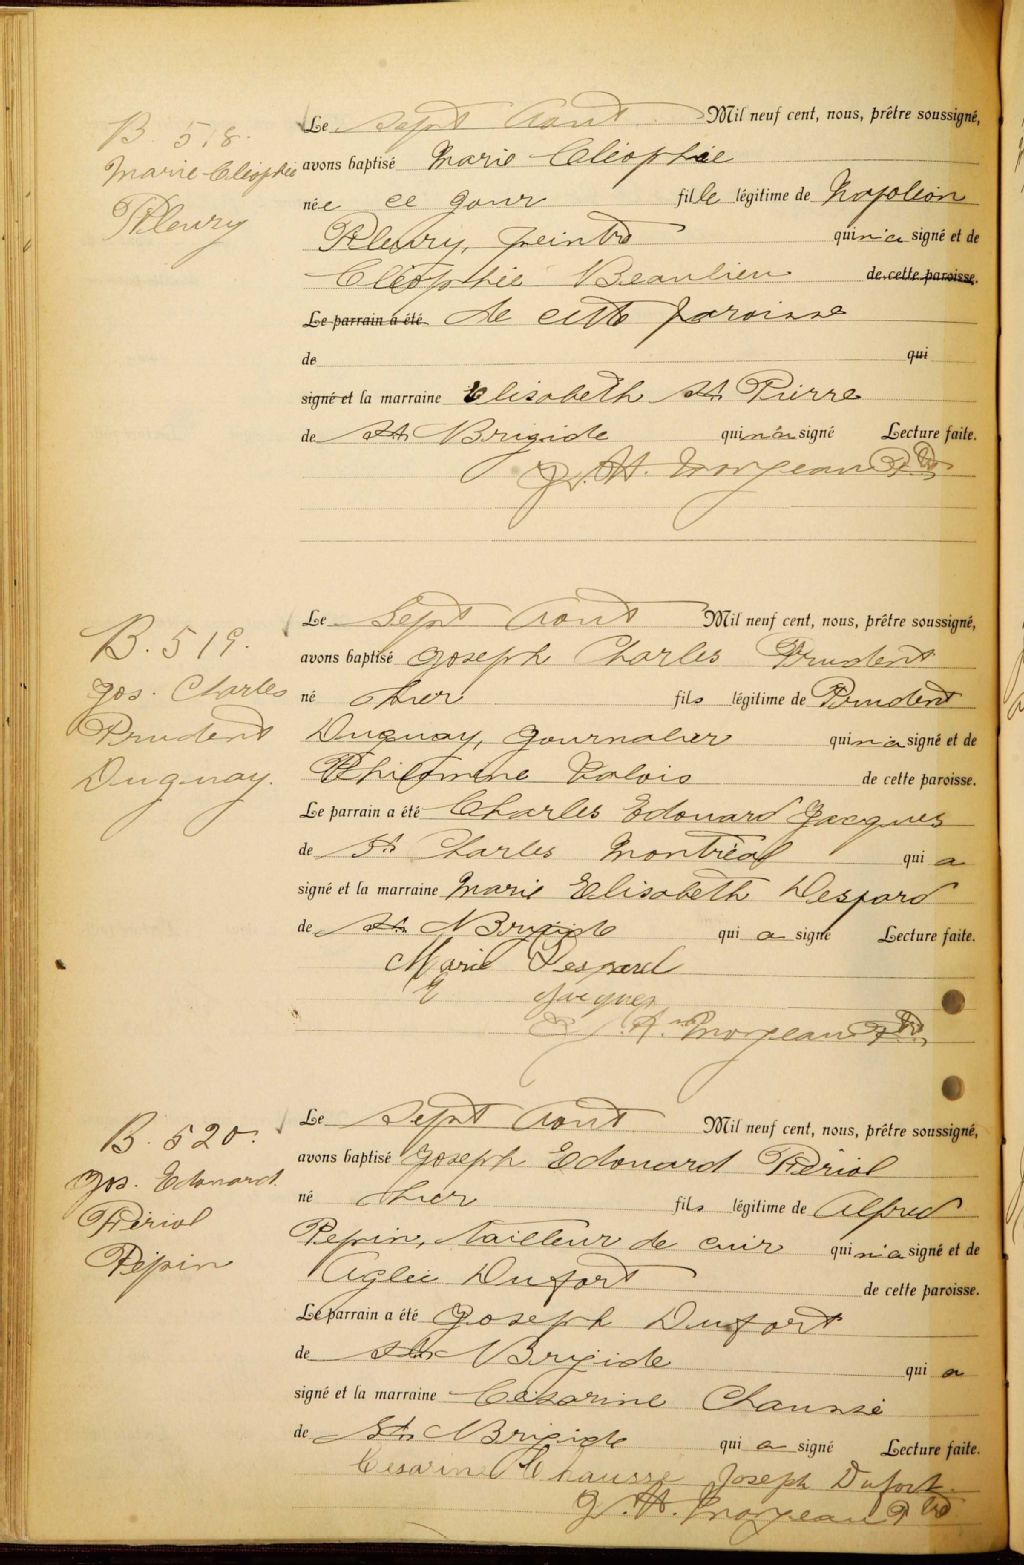 B. 518.
Marie Cléophée
Fleury
Le sept Août Mil neuf cent, nous, prêtre soussigné,
avons baptisé Marie Cléophée
née ce jour fille légitime de Napoléon
Fleury, peintre qui n'a signé et de
Cléophée Beaulieu de cette paroisse.
Le parrain a été de cette paroisse
de qui
signé et la marraine Elisabeth St Pierre
de Ste Brigide qui n'a signé Lecture faite.
J. H. Morjeau Ptre
B. 519.
Jos. Charles
Prudent
Duguay.
Le Sept Août Mil neuf cent, nous, prêtre soussigné,
avons baptisé Joseph Charles Prudent
né hier fils légitime de Prudent
Duguay, Journalier qui n'a signé et de
Philomène Valois de cette paroisse.
Le parrain a été Charles Edouard Jacques
de St Charles Montréal qui a
signé et la marraine Marie Elisabeth Despard
de Ste Brigide qui a signé Lecture faite.
Marie Despard
E Jacques
Morjeau Ptre
B. 520.
Jos. Edouard
Fériol
Pépin
Le sept Août Mil neuf cent, nous, prêtre soussigné,
avons baptisé Joseph Edouard Fériol
né hier fils légitime de Alfred
Pepin, tailleur de cuir qui n'a signé et de
Aglée Dufort de cette paroisse.
Le parrain a été Joseph Dufort
de Ste Brigide qui a
signé et la marraine Césarine Chaussé
de Ste Brigide qui a signé Lecture faite.
Cesarine Chausse Joseph Dufort.
J. H. Morjeau Ptre